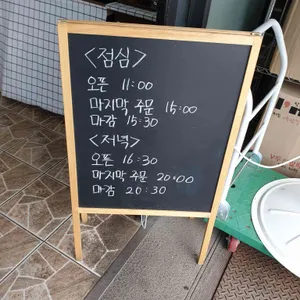 <점심>
오픈 11:00
마지막 주문 15:00
마감 15:30
<저녁>
오픈 16:30
마지막 주문 20:00
마감 20:30